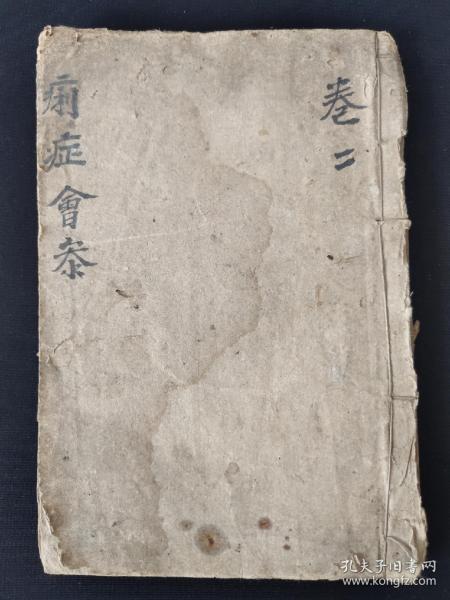 卷二
痢症會参
孔夫子旧书网
www.kongfz.com